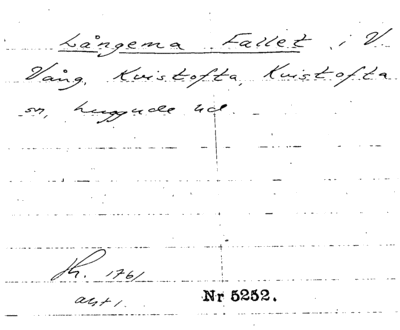 Långema Fallet i V
Vång, Kvistofta, Kvistofta
sn, Luggude hd.
Kh. 1761
akt 1.
Nr 5252.